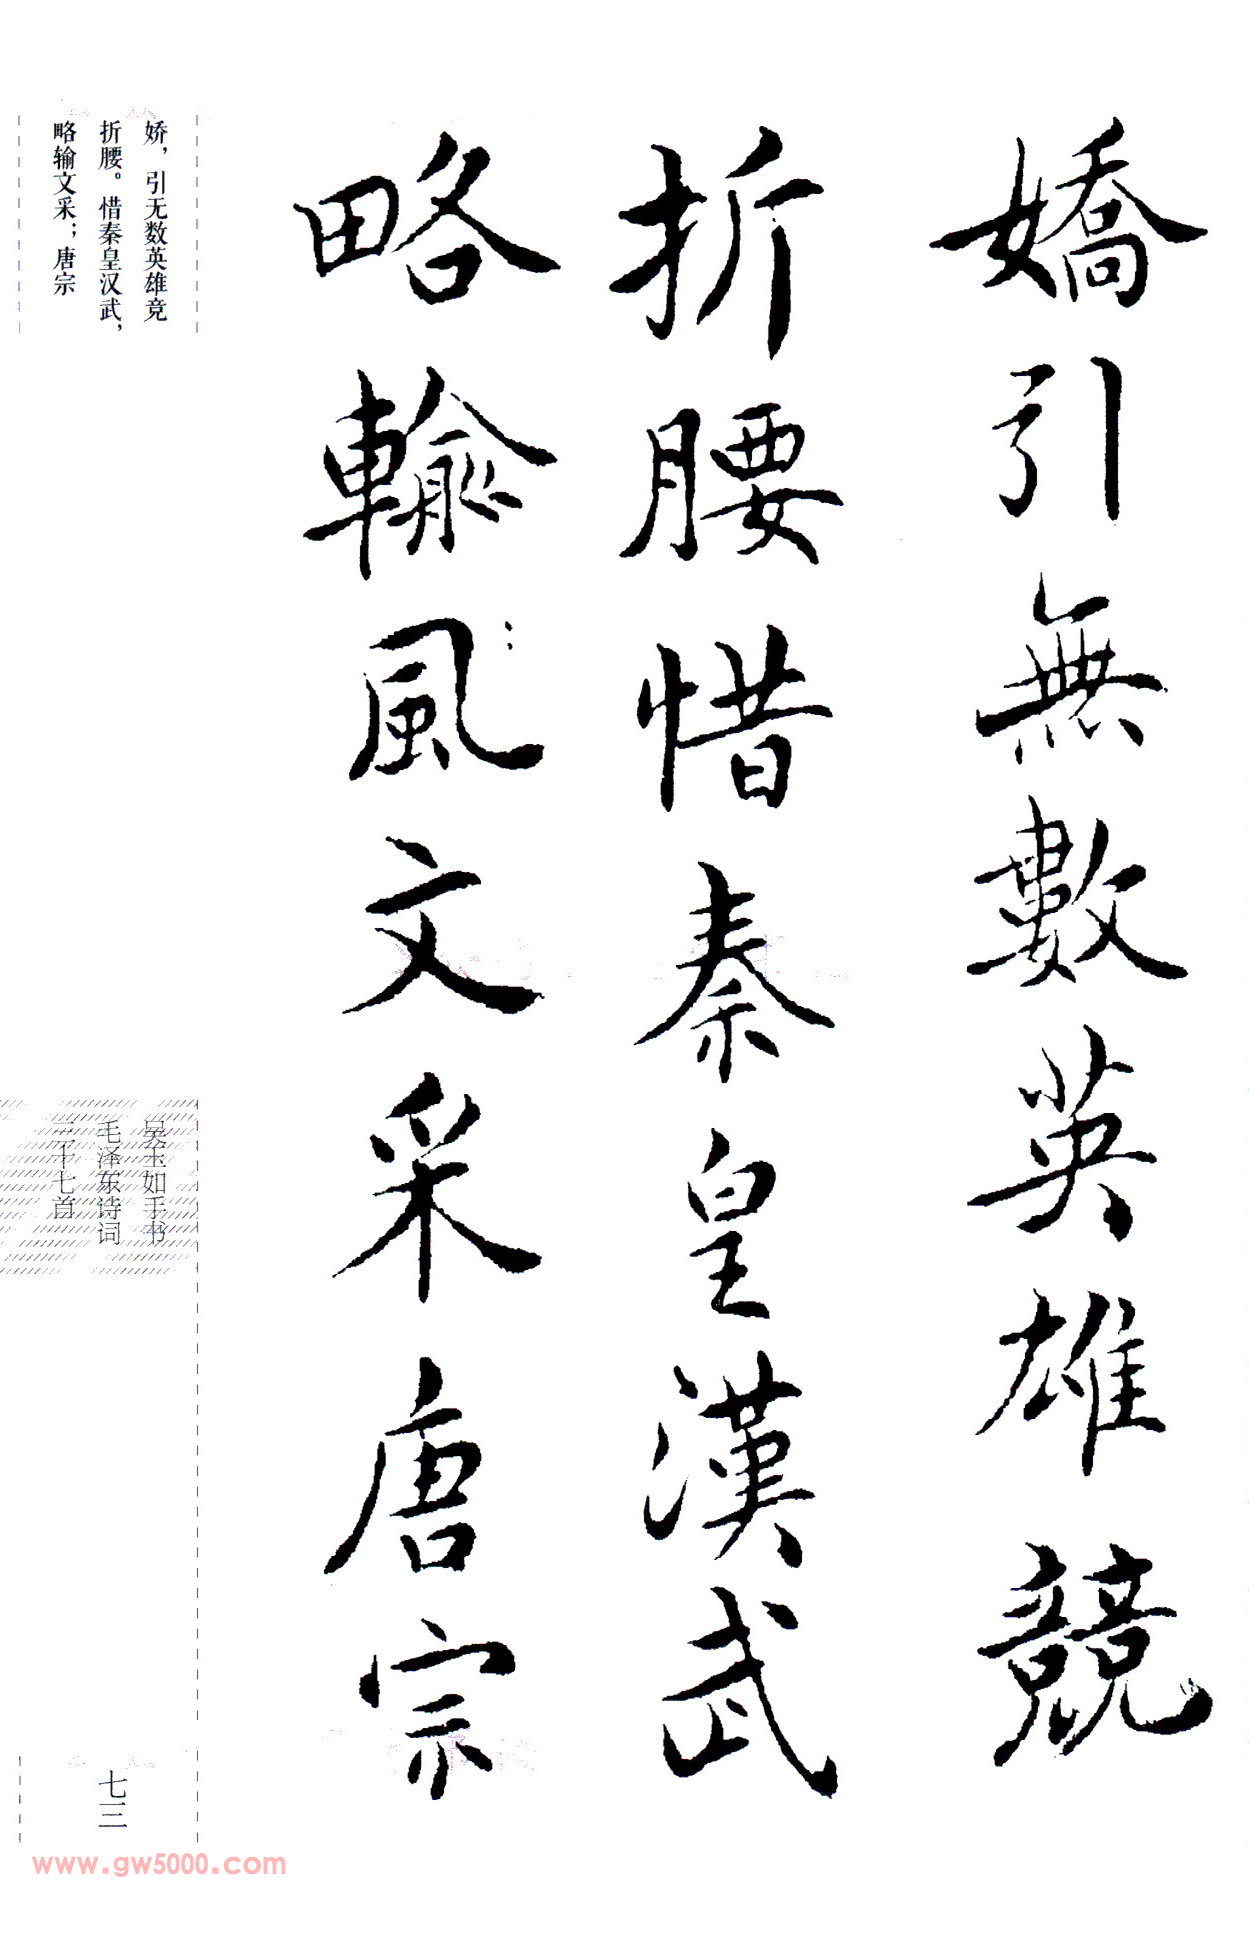 嬌引無數英雄競
折腰惜秦皇漢武
略輸風文采唐宗
娇，引无数英雄竞
折腰。惜秦皇汉武，
略输文采；唐宗
吴玉如手书
毛泽东诗词
三十七首
七三
www.gw5000.com